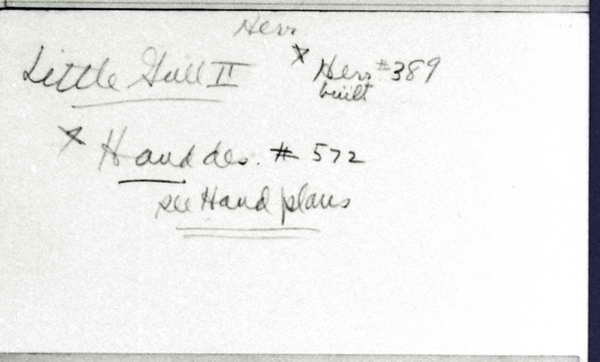 Herr
Little Gull II * Herr #389
built
* Hand des. # 572
see Hand plans